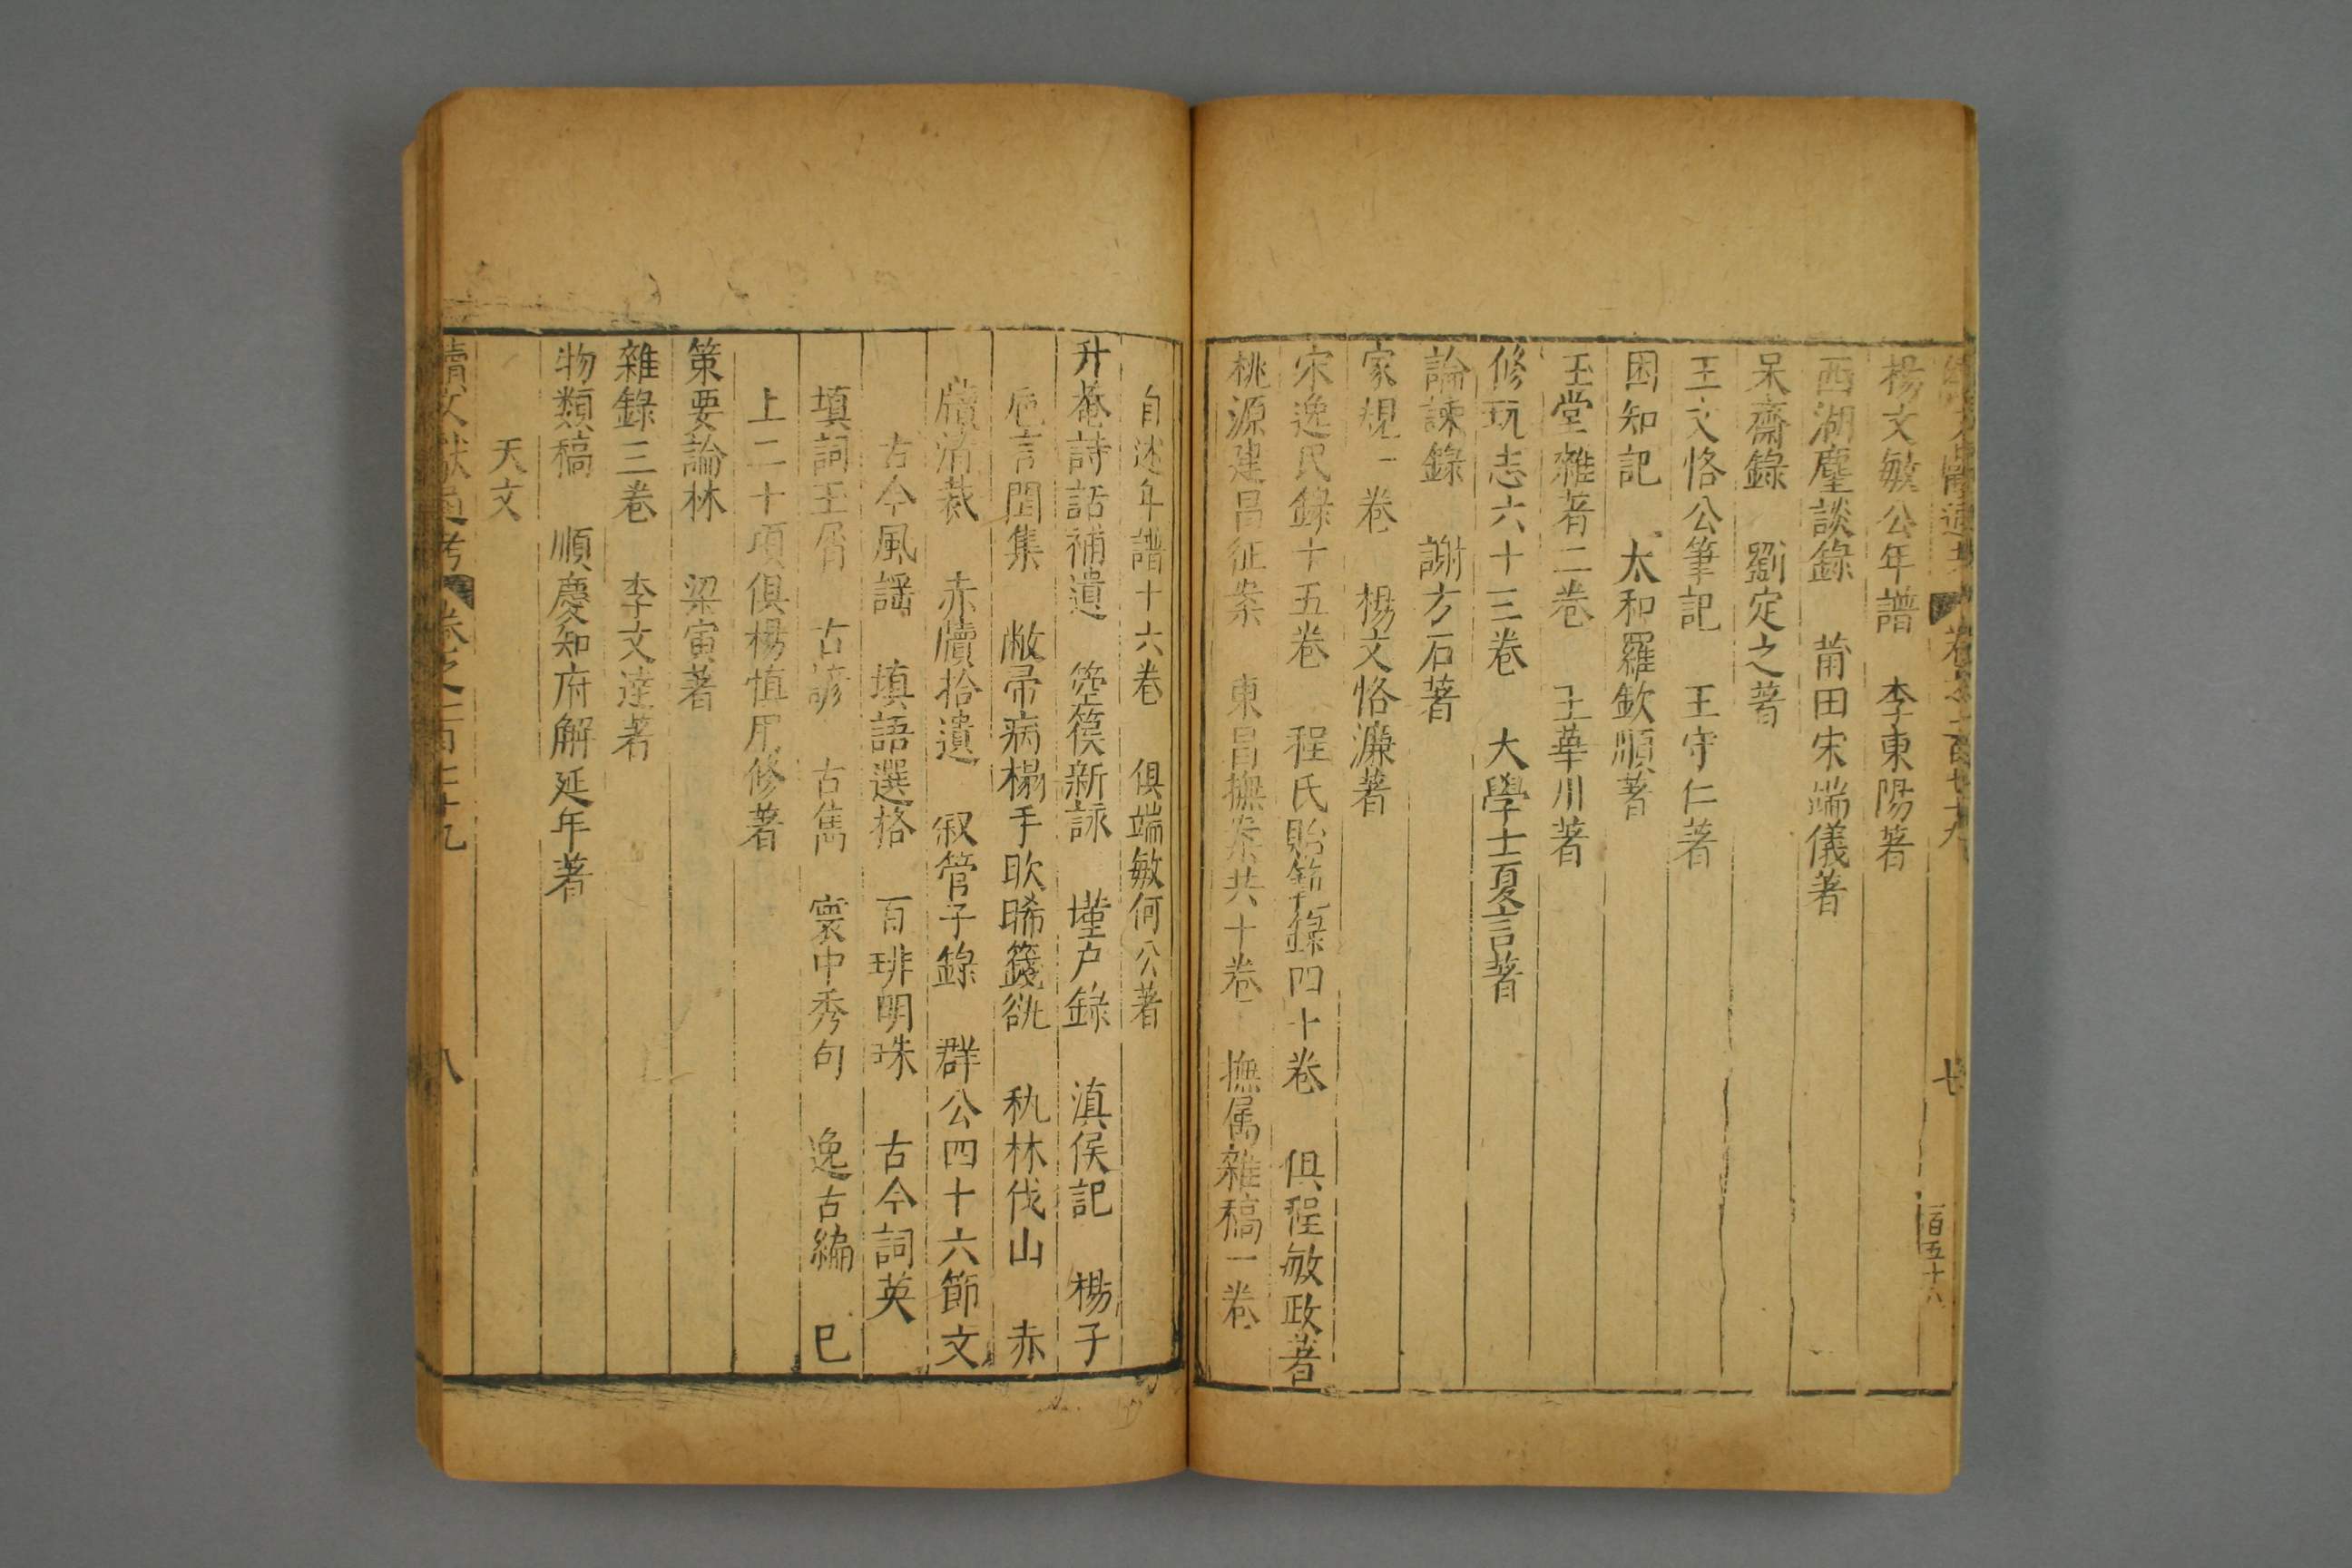 續文獻通考 卷之一百七十九 七 一百五十八
楊文敏公年譜 李東陽著
西湖塵談錄 莆田宋端儀著
呆齋錄 劉定之著
王文恪公筆記 王守仁著
困知記 太和羅欽順著
玉堂雜著二卷 王華川著
修玩志六十三卷 大學士夏言著
論諫錄 謝方石著
家規一卷 楊文恪濂著
宋逸民錄十五卷 程氏貽範錄四十卷 俱程敏政著
桃源建昌征案 東昌撫案共十卷 撫属雜稿一卷
自述年譜十六卷 俱端敏何公著
升菴詩話補遺 箜篌新詠 墐户錄 滇侯記 楊子
卮言閏集 敝帚病榻手欥晞籛 秇林伐山 赤
牘清裁 赤牘拾遺 叙管子錄 群公四十六節文
古今風謡 填語選格 百琲明珠 古今詞英
填詞玉屑 古諺 古雋 寰中秀句 逸古編 巳
上二十項俱楊慎用修著
策要論林 梁寅著
雜錄三卷 李文達著
物類稿 順慶知府解延年著
天文
續文獻通考 卷之一百七十九 八